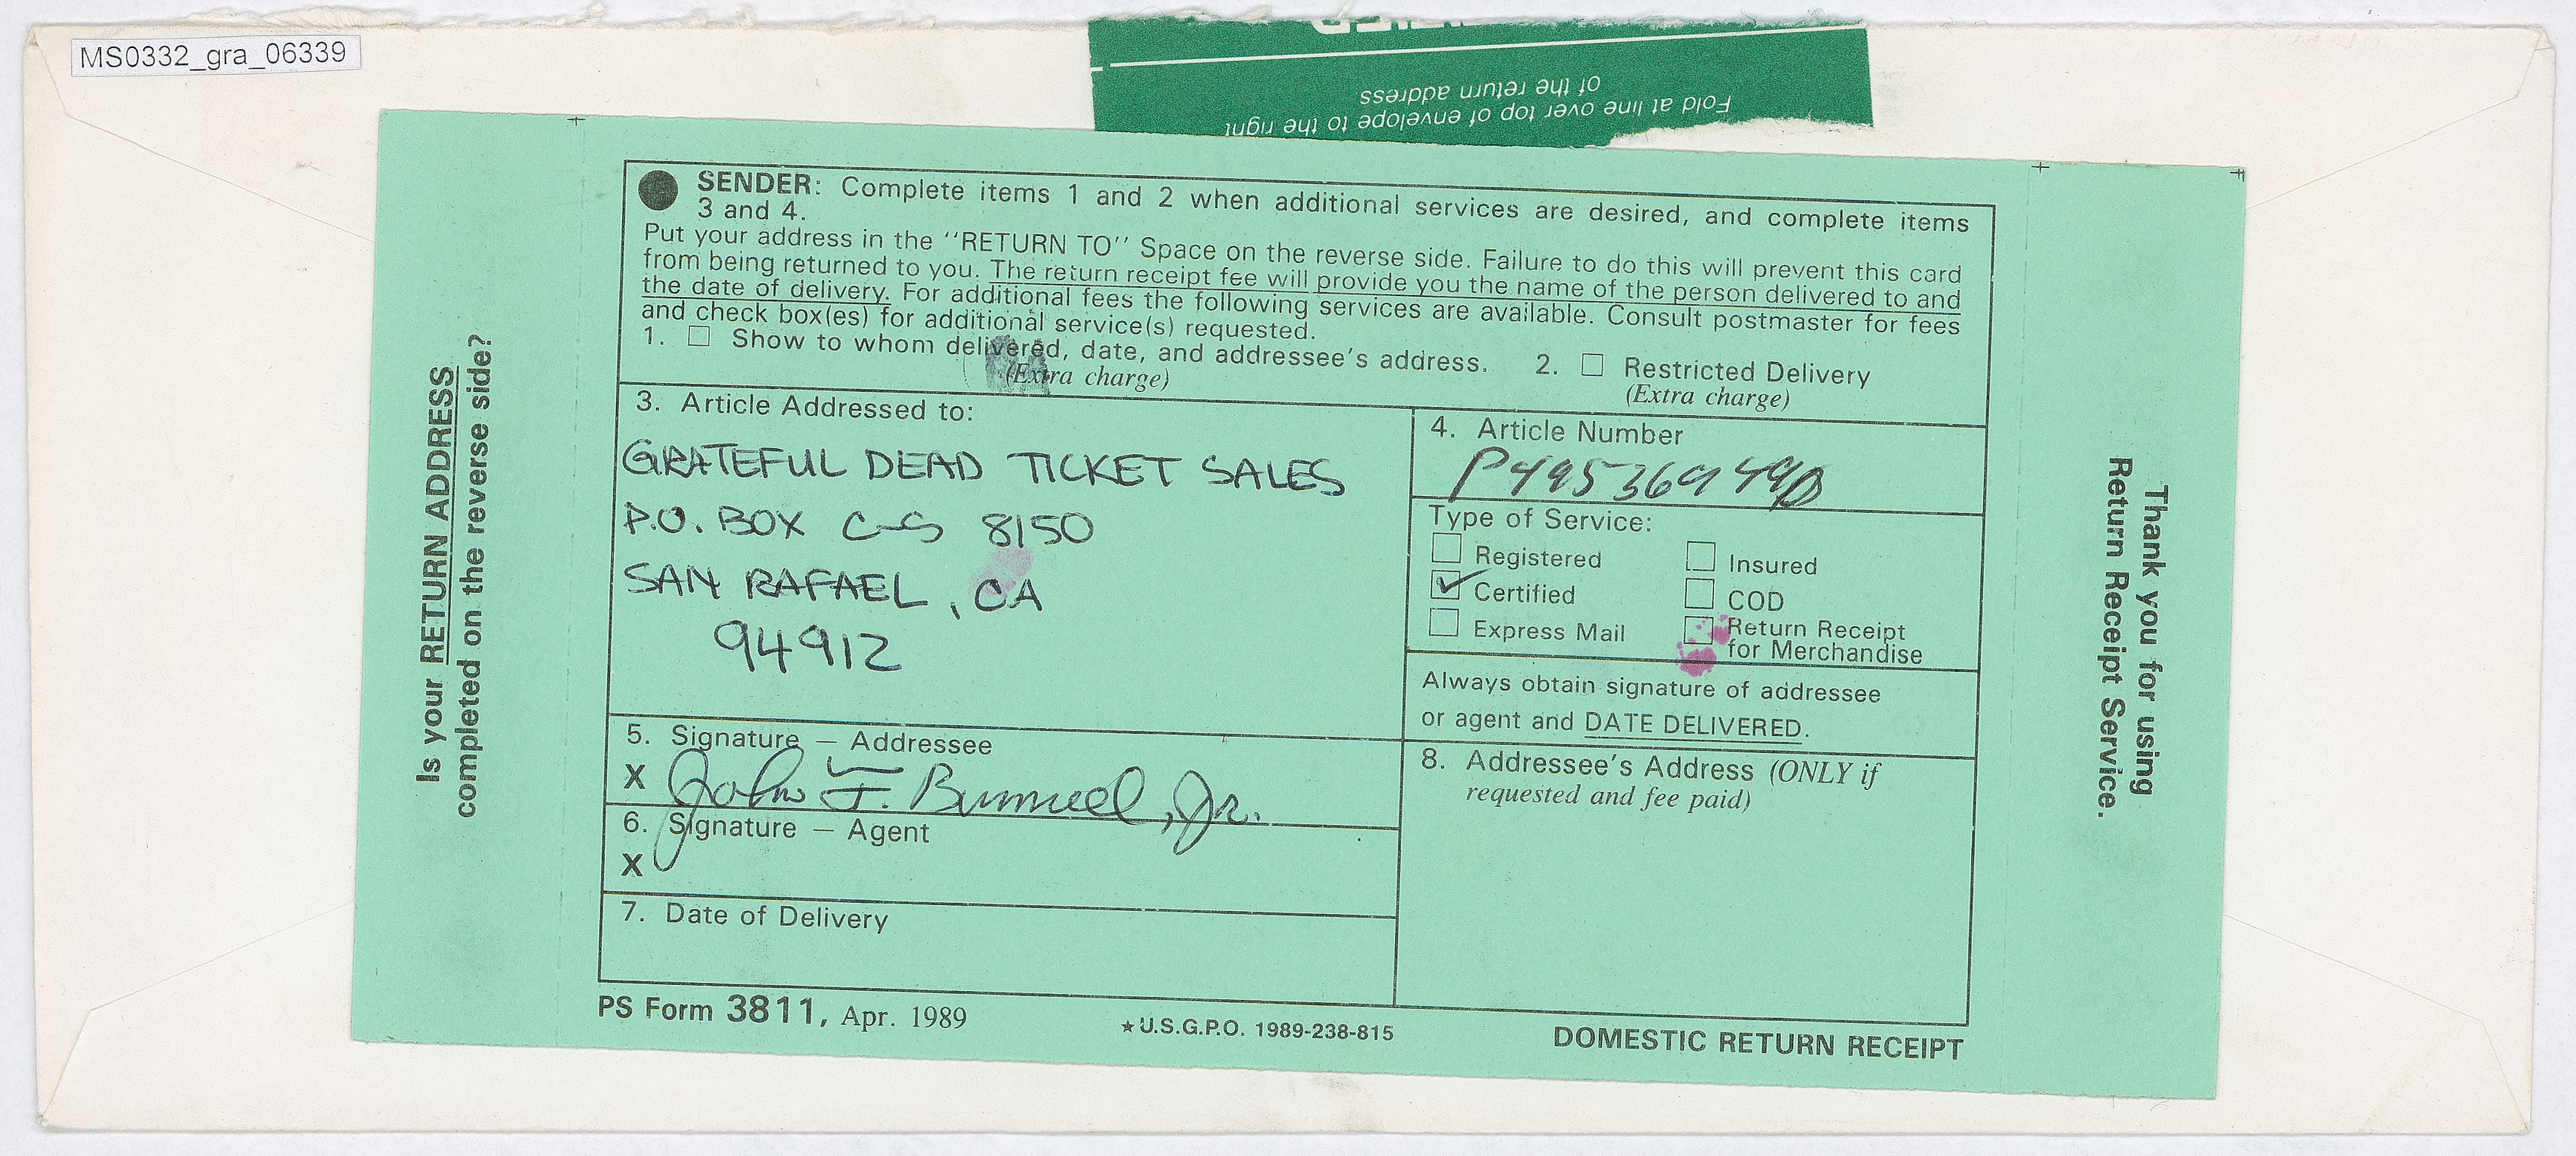 MS0332_gra_06339
Fold at line over top of envelope to the right
of the return address
Is your RETURN ADDRESS
completed on the reverse side?
SENDER: Complete items 1 and 2 when additional services are desired, and complete items
3 and 4.
Put your address in the "RETURN TO" Space on the reverse side. Failure to do this will prevent this card
from being returned to you. The return receipt fee will provide you the name of the person delivered to and
the date of delivery. For additional fees the following services are available. Consult postmaster for fees
and check box(es) for additional service(s) requested.
1. ☐ Show to whom delivered, date, and addressee's address. 2. ☐ Restricted Delivery
(Extra charge) (Extra charge)
3. Article Addressed to:
GRATEFUL DEAD TICKET SALES
P.O. BOX C-S 8150
SAN RAFAEL, CA
94912
4. Article Number
P495369490
Type of Service:
☐ Registered ☐ Insured
☑ Certified ☐ COD
☐ Express Mail ☐ Return Receipt
for Merchandise
Always obtain signature of addressee
or agent and DATE DELIVERED.
5. Signature — Addressee
X John F. Bunnell, Jr.
6. Signature — Agent
X
7. Date of Delivery
8. Addressee's Address (ONLY if
requested and fee paid)
PS Form 3811, Apr. 1989 ★ U.S.G.P.O. 1989-238-815 DOMESTIC RETURN RECEIPT
Thank you for using
Return Receipt Service.